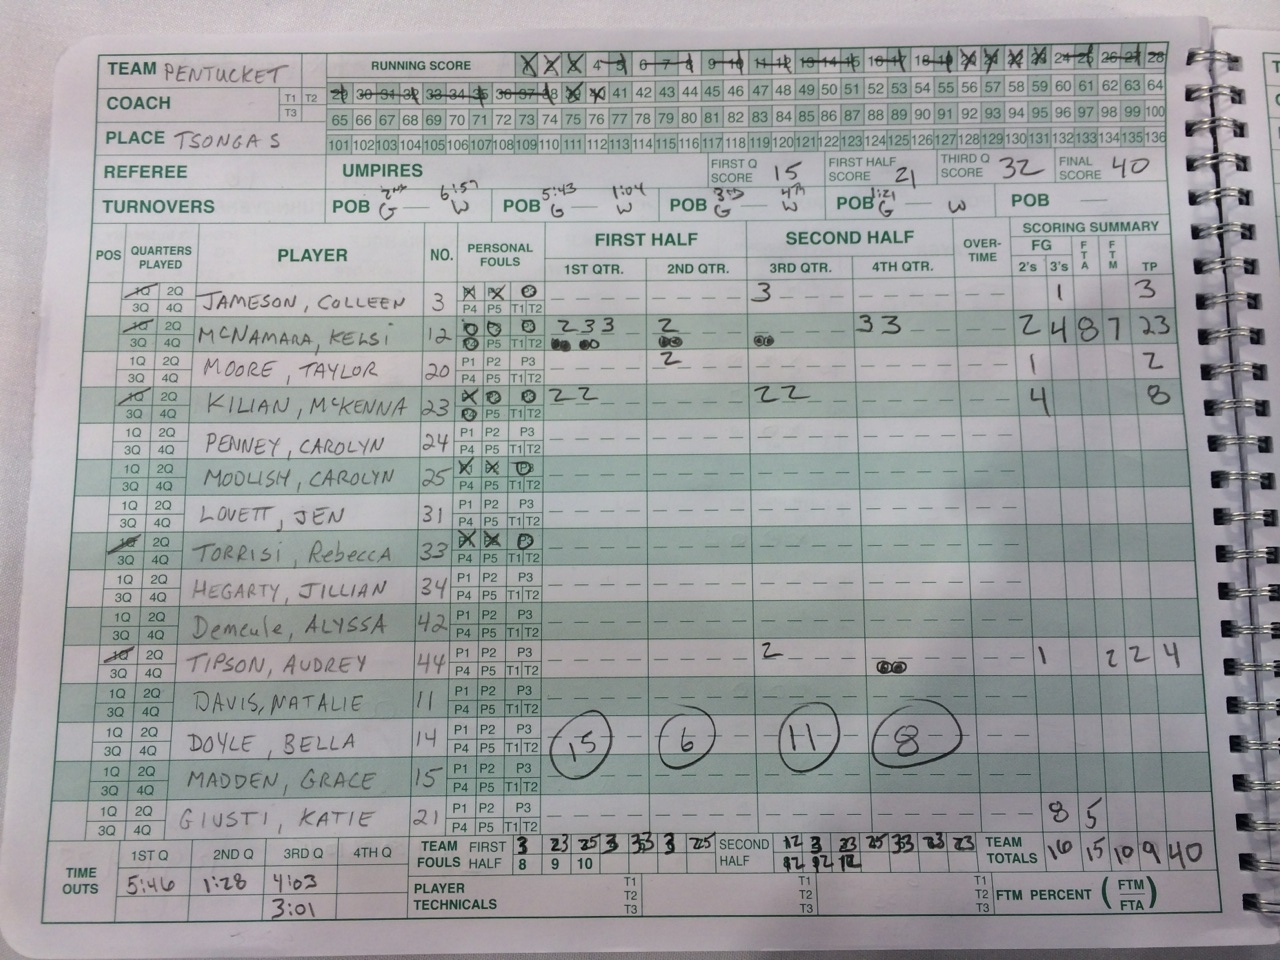 TEAM PENTUCKET RUNNING SCORE 4 5 6 7 8 9 10 11 12 13 14 15 16 17 18 19 24 25 26 27 28
COACH T1 T2 T3 30 31 32 33 34 35 36 37 38 41 42 43 44 45 46 47 48 49 50 51 52 53 54 55 56 57 58 59 60 61 62 63 64
65 66 67 68 69 70 71 72 73 74 75 76 77 78 79 80 81 82 83 84 85 86 87 88 89 90 91 92 93 94 95 96 97 98 99 100
PLACE TSONGAS 101 102 103 104 105 106 107 108 109 110 111 112 113 114 115 116 117 118 119 120 121 122 123 124 125 126 127 128 129 130 131 132 133 134 135 136
REFEREE UMPIRES FIRST Q SCORE 15 FIRST HALF SCORE 21 THIRD Q SCORE 32 FINAL SCORE 40
2nd 6:57 5:43 1:04 3RD 4TH 1:21
TURNOVERS POB G W POB G W POB G W POB G W POB
POS QUARTERS PLAYED PLAYER NO. PERSONAL FOULS FIRST HALF SECOND HALF OVER-TIME SCORING SUMMARY
1ST QTR. 2ND QTR. 3RD QTR. 4TH QTR. FG 2's 3's FTA FTM TP
1Q 2Q 3Q 4Q JAMESON, COLLEEN 3 P4 P5 T1 T2 3 1 3
1Q 2Q 3Q 4Q MCNAMARA, KELSi 12 P5 T1 T2 2 3 3 2 3 3 2 4 8 7 23
1Q 2Q 3Q 4Q MOORE, TAYLOR 20 P1 P2 P3 P4 P5 T1 T2 2 1 2
1Q 2Q 3Q 4Q KILIAN, MCKENNA 23 P5 T1 T2 2 2 2 2 4 8
1Q 2Q 3Q 4Q PENNEY, CAROLYN 24 P1 P2 P3 P4 P5 T1 T2
1Q 2Q 3Q 4Q MODLISH, CAROLYN 25 P4 P5 T1 T2
1Q 2Q 3Q 4Q LOVETT, JEN 31 P1 P2 P3 P4 P5 T1 T2
1Q 2Q 3Q 4Q TORRISi, Rebecca 33 P4 P5 T1 T2
1Q 2Q 3Q 4Q HEGARTY, JILLIAN 34 P1 P2 P3 P4 P5 T1 T2
1Q 2Q 3Q 4Q Demeule, ALYSSA 42 P1 P2 P3 P4 P5 T1 T2
1Q 2Q 3Q 4Q TIPSON, AUDREY 44 P1 P2 P3 P4 P5 T1 T2 2 1 2 2 4
1Q 2Q 3Q 4Q DAVIS, NATALIE 11 P1 P2 P3 P4 P5 T1 T2
1Q 2Q 3Q 4Q DOYLE, BELLA 14 P1 P2 P3 P4 P5 T1 T2 15 6 11 8
1Q 2Q 3Q 4Q MADDEN, GRACE 15 P1 P2 P3 P4 P5 T1 T2
1Q 2Q 3Q 4Q GIUSTI, KATIE 21 P1 P2 P3 P4 P5 T1 T2 8 5
TIME OUTS 1ST Q 2ND Q 3RD Q 4TH Q TEAM FOULS FIRST HALF 3 23 25 3 33 3 25 8 9 10 SECOND HALF 12 3 23 25 33 23 23 12 12 12 TEAM TOTALS 16 15 10 9 40
5:46 1:28 4:03
3:01
PLAYER TECHNICALS T1 T2 T3 T1 T2 T3 T1 T2 T3 FTM PERCENT (FTM/FTA)